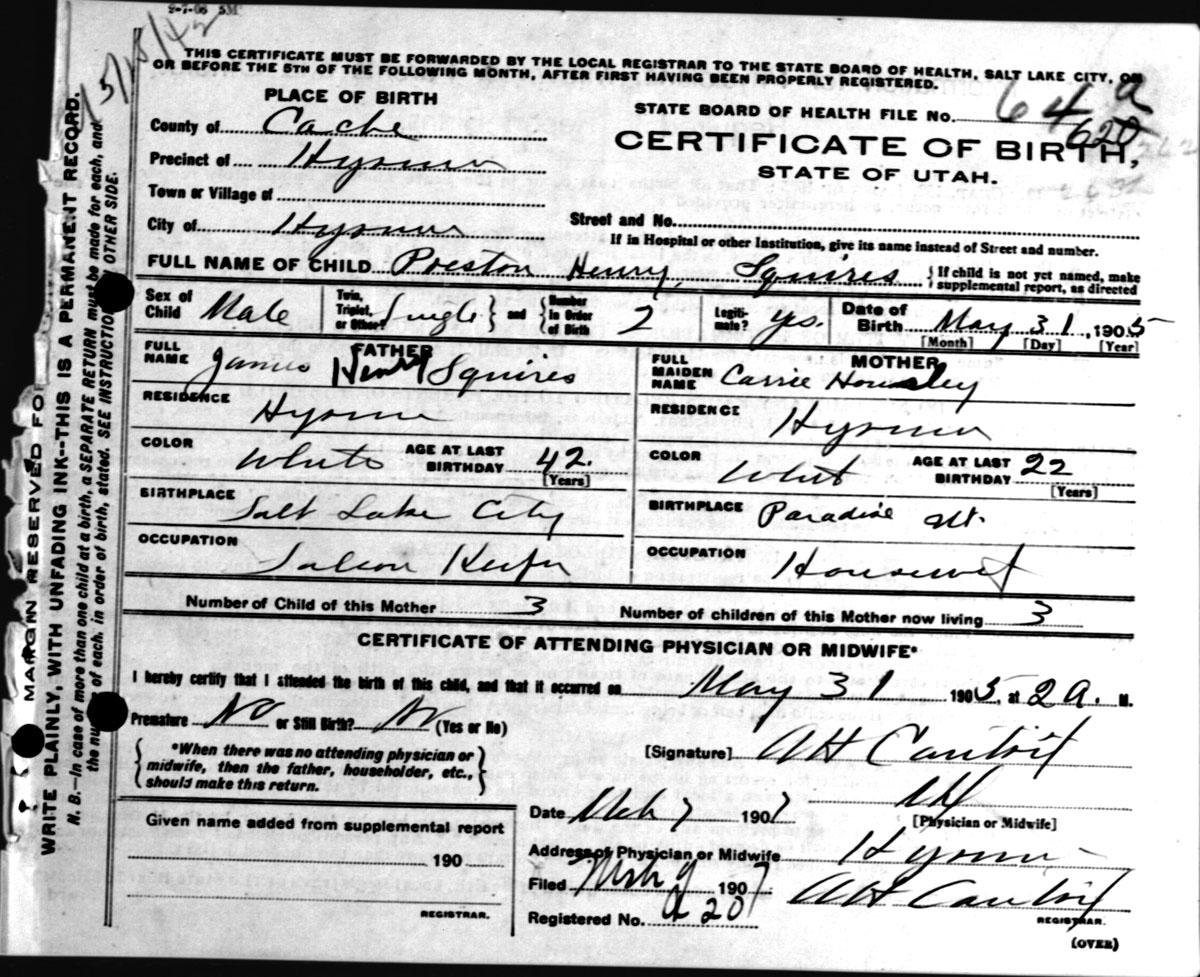 9-7-06 5M
5/18/42
THIS CERTIFICATE MUST BE FORWARDED BY THE LOCAL REGISTRAR TO THE STATE BOARD OF HEALTH, SALT LAKE CITY, ON
OR BEFORE THE 5TH OF THE FOLLOWING MONTH, AFTER FIRST HAVING BEEN PROPERLY REGISTERED.
PLACE OF BIRTH
County of Cache
Precinct of Hyrum
Town or Village of
City of Hyrum
STATE BOARD OF HEALTH FILE No. 64 a
620
CERTIFICATE OF BIRTH,
STATE OF UTAH.
Street and No.
If in Hospital or other Institution, give its name instead of Street and number.
FULL NAME OF CHILD Preston Henry Squires { If child is not yet named, make
supplemental report, as directed
Sex of Child Male Twin, Triplet, or Other? Single } and { Number in Order of Birth 2 Legiti-mate? yes. Date of Birth May 31, 1905
[Month] [Day] [Year]
FATHER
FULL NAME James Henry Squires
RESIDENCE Hyrum
COLOR White AGE AT LAST BIRTHDAY 42.
[Years]
BIRTHPLACE Salt Lake City
OCCUPATION Saloon Keeper
MOTHER
FULL MAIDEN NAME Carrie Housley
RESIDENCE Hyrum
COLOR White AGE AT LAST BIRTHDAY 22
[Years]
BIRTHPLACE Paradise Ut.
OCCUPATION Housewife
Number of Child of this Mother 3 Number of children of this Mother now living 3
CERTIFICATE OF ATTENDING PHYSICIAN OR MIDWIFE*
I hereby certify that I attended the birth of this child, and that it occurred on May 31 1905, at 2 a. M.
Premature No or Still Birth? No (Yes or No)
{ *When there was no attending physician or
midwife, then the father, householder, etc.,
should make this return. }
[Signature] AH
MD
[Physician or Midwife]
Given name added from supplemental report
190
REGISTRAR.
Date Mch 7 1907
Address of Physician or Midwife Hyrum
Filed Mch 9 1907 AH
REGISTRAR.
Registered No. a 20
(OVER)
MARGIN RESERVED FOR
WRITE PLAINLY, WITH UNFADING INK--THIS IS A PERMANENT RECORD.
N. B.--In case of more than one child at a birth, a SEPARATE RETURN must be made for each, and
the number of each, in order of birth, stated. SEE INSTRUCTIONS OTHER SIDE.